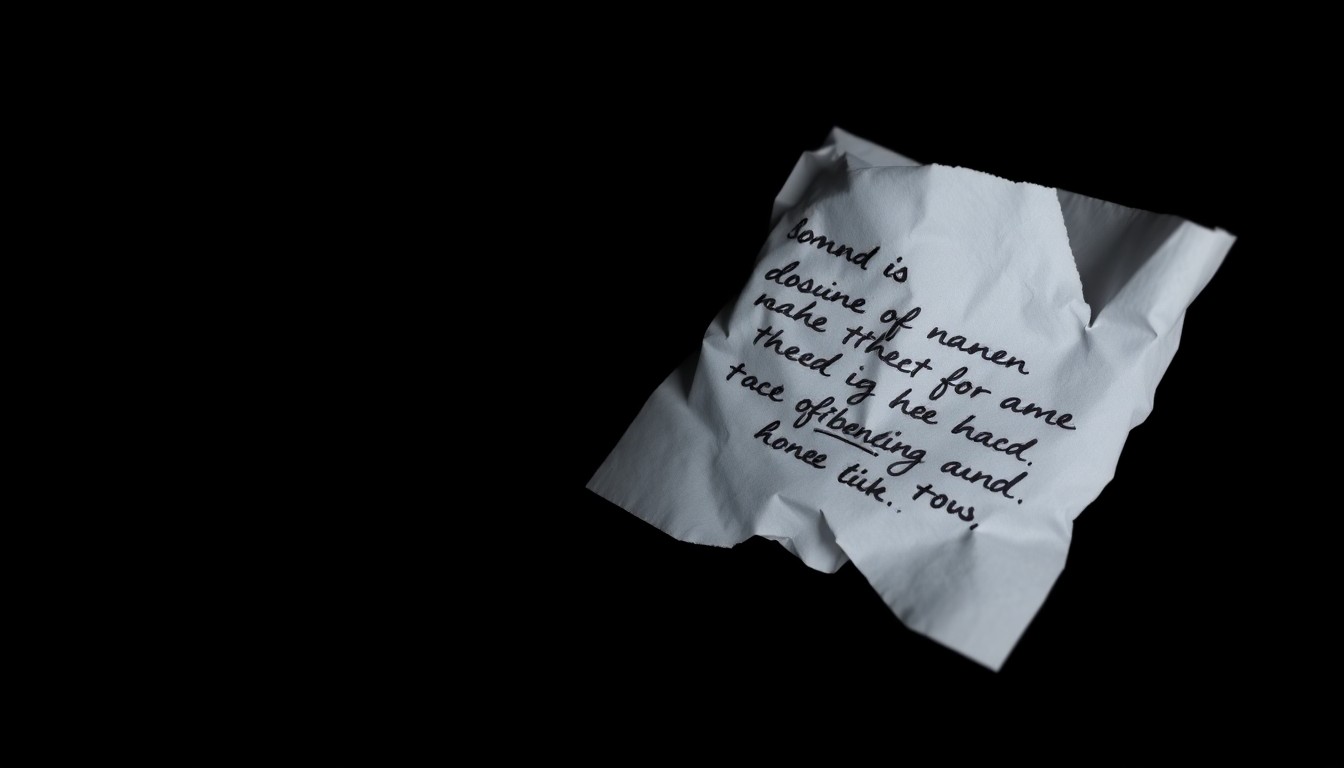 Somnd is
dosuine of nanen
mahe tthect for ame
theed ig hee hacd.
tace ofibenting aund.
honee tük.. tous,